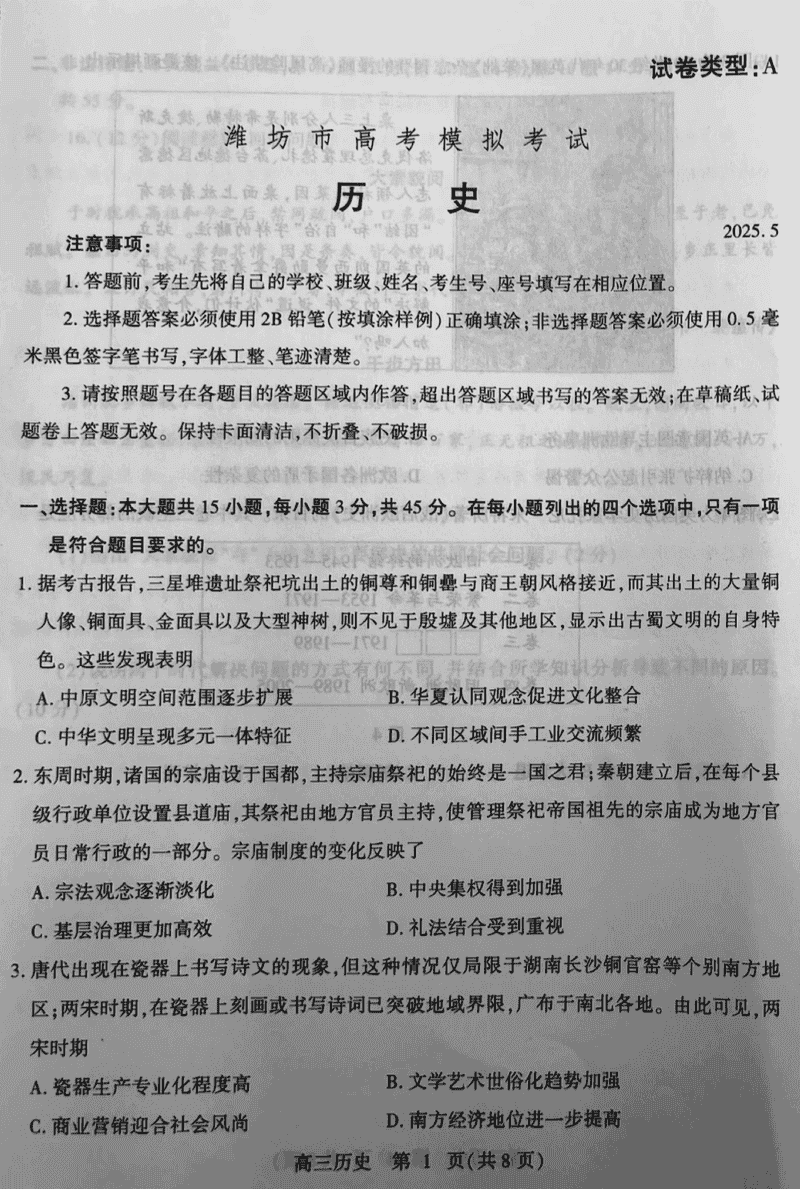 试卷类型:A
潍坊市高考模拟考试
历 史
2025.5
注意事项:
1. 答题前,考生先将自己的学校、班级、姓名、考生号、座号填写在相应位置。
2. 选择题答案必须使用2B铅笔(按填涂样例)正确填涂;非选择题答案必须使用0.5毫
米黑色签字笔书写,字体工整、笔迹清楚。
3. 请按照题号在各题目的答题区域内作答,超出答题区域书写的答案无效;在草稿纸、试
题卷上答题无效。保持卡面清洁,不折叠、不破损。
一、选择题:本大题共15小题,每小题3分,共45分。在每小题列出的四个选项中,只有一项
是符合题目要求的。
1. 据考古报告,三星堆遗址祭祀坑出土的铜尊和铜罍与商王朝风格接近,而其出土的大量铜
人像、铜面具、金面具以及大型神树,则不见于殷墟及其他地区,显示出古蜀文明的自身特
色。这些发现表明
A. 中原文明空间范围逐步扩展 B. 华夏认同观念促进文化整合
C. 中华文明呈现多元一体特征 D. 不同区域间手工业交流频繁
2. 东周时期,诸国的宗庙设于国都,主持宗庙祭祀的始终是一国之君;秦朝建立后,在每个县
级行政单位设置县道庙,其祭祀由地方官员主持,使管理祭祀帝国祖先的宗庙成为地方官
员日常行政的一部分。宗庙制度的变化反映了
A. 宗法观念逐渐淡化 B. 中央集权得到加强
C. 基层治理更加高效 D. 礼法结合受到重视
3. 唐代出现在瓷器上书写诗文的现象,但这种情况仅局限于湖南长沙铜官窑等个别南方地
区;两宋时期,在瓷器上刻画或书写诗词已突破地域界限,广布于南北各地。由此可见,两
宋时期
A. 瓷器生产专业化程度高 B. 文学艺术世俗化趋势加强
C. 商业营销迎合社会风尚 D. 南方经济地位进一步提高
高三历史 第 1 页(共8页)